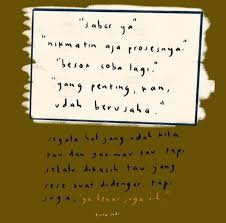 "sabar ya"
"nikmatin aja prosesnya."
"besok coba lagi."
"yang penting, kan,
udah berusaha."
segala hal yang udah kita
tau dan gak mau tau tapi
selalu dikasih tau yang
rese buat didengar. tapi
juga, ya benar juga sih.